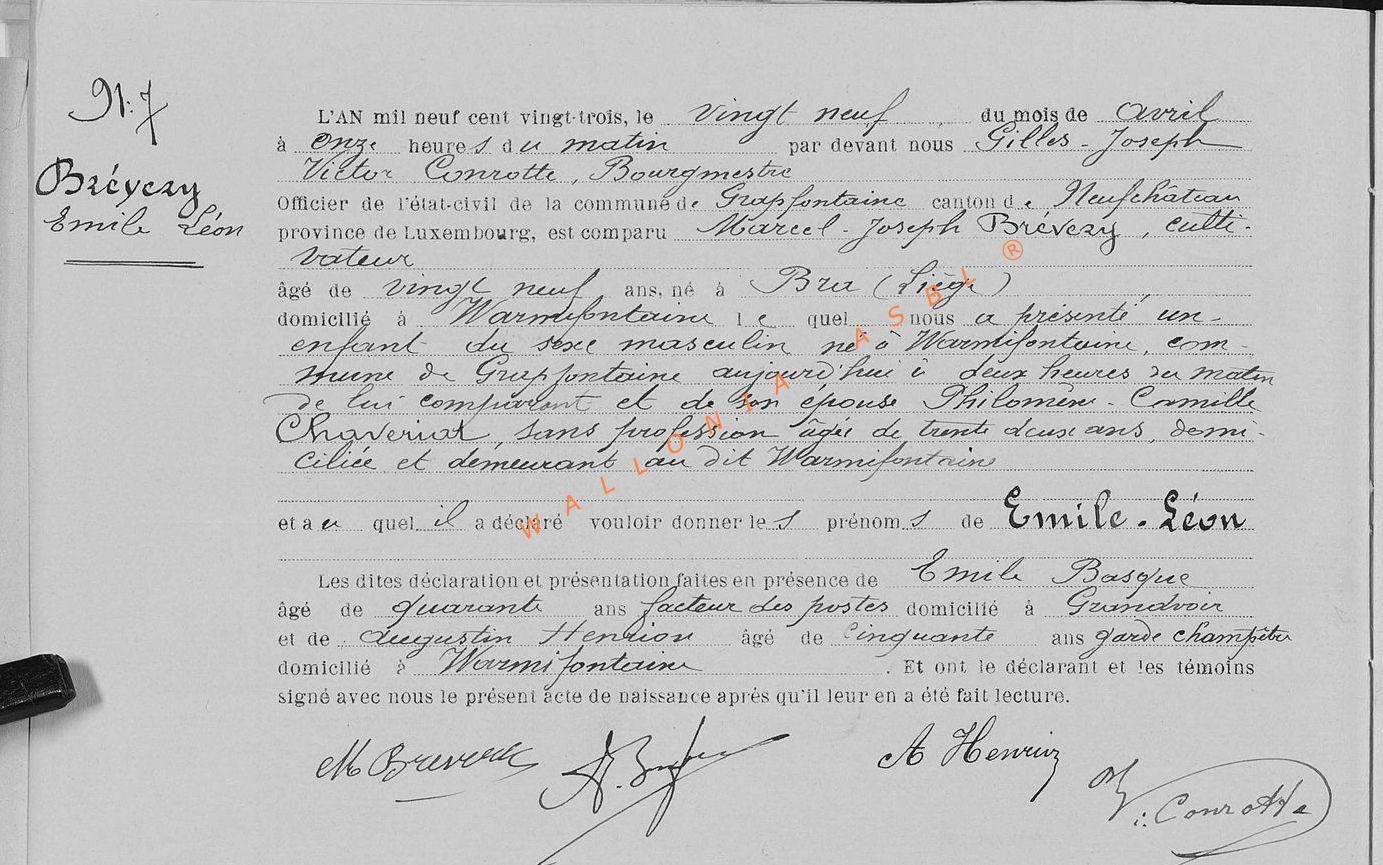 N. 7
Brévezy
Emile Léon
L'AN mil neuf cent vingt-trois, le vingt neuf du mois de avril
à onze heures du matin par devant nous Gilles-Joseph
Victor Conrotte, Bourgmestre
Officier de l'état-civil de la commune de Grapfontaine canton de Neufchâteau
province de Luxembourg, est comparu Marcel-Joseph Brévezy, culti-
vateur
âgé de vingt neuf ans, né à Bra (Liège)
domicilié à Warmifontaine lequel nous a présenté un-
enfant du sexe masculin né à Warmifontaine, com-
mune de Grapfontaine aujourd'hui à deux heures du matin
de lui comparant et de son épouse Philomène-Camille
Chaveriat, sans profession âgée de trente deux ans, domi-
ciliée et demeurant au dit Warmifontaine
et au quel il a déclaré vouloir donner les prénoms de Emile-Léon
Les dites déclaration et présentation faites en présence de Emile Basque
âgé de quarante ans facteur des postes domicilié à Grandvoir
et de Augustin Henrion âgé de cinquante ans garde champêtre
domicilié à Warmifontaine. Et ont le déclarant et les témoins
signé avec nous le présent acte de naissance après qu'il leur en a été fait lecture.
A Henrion
Conrotte
WALLONIA ASBL ®